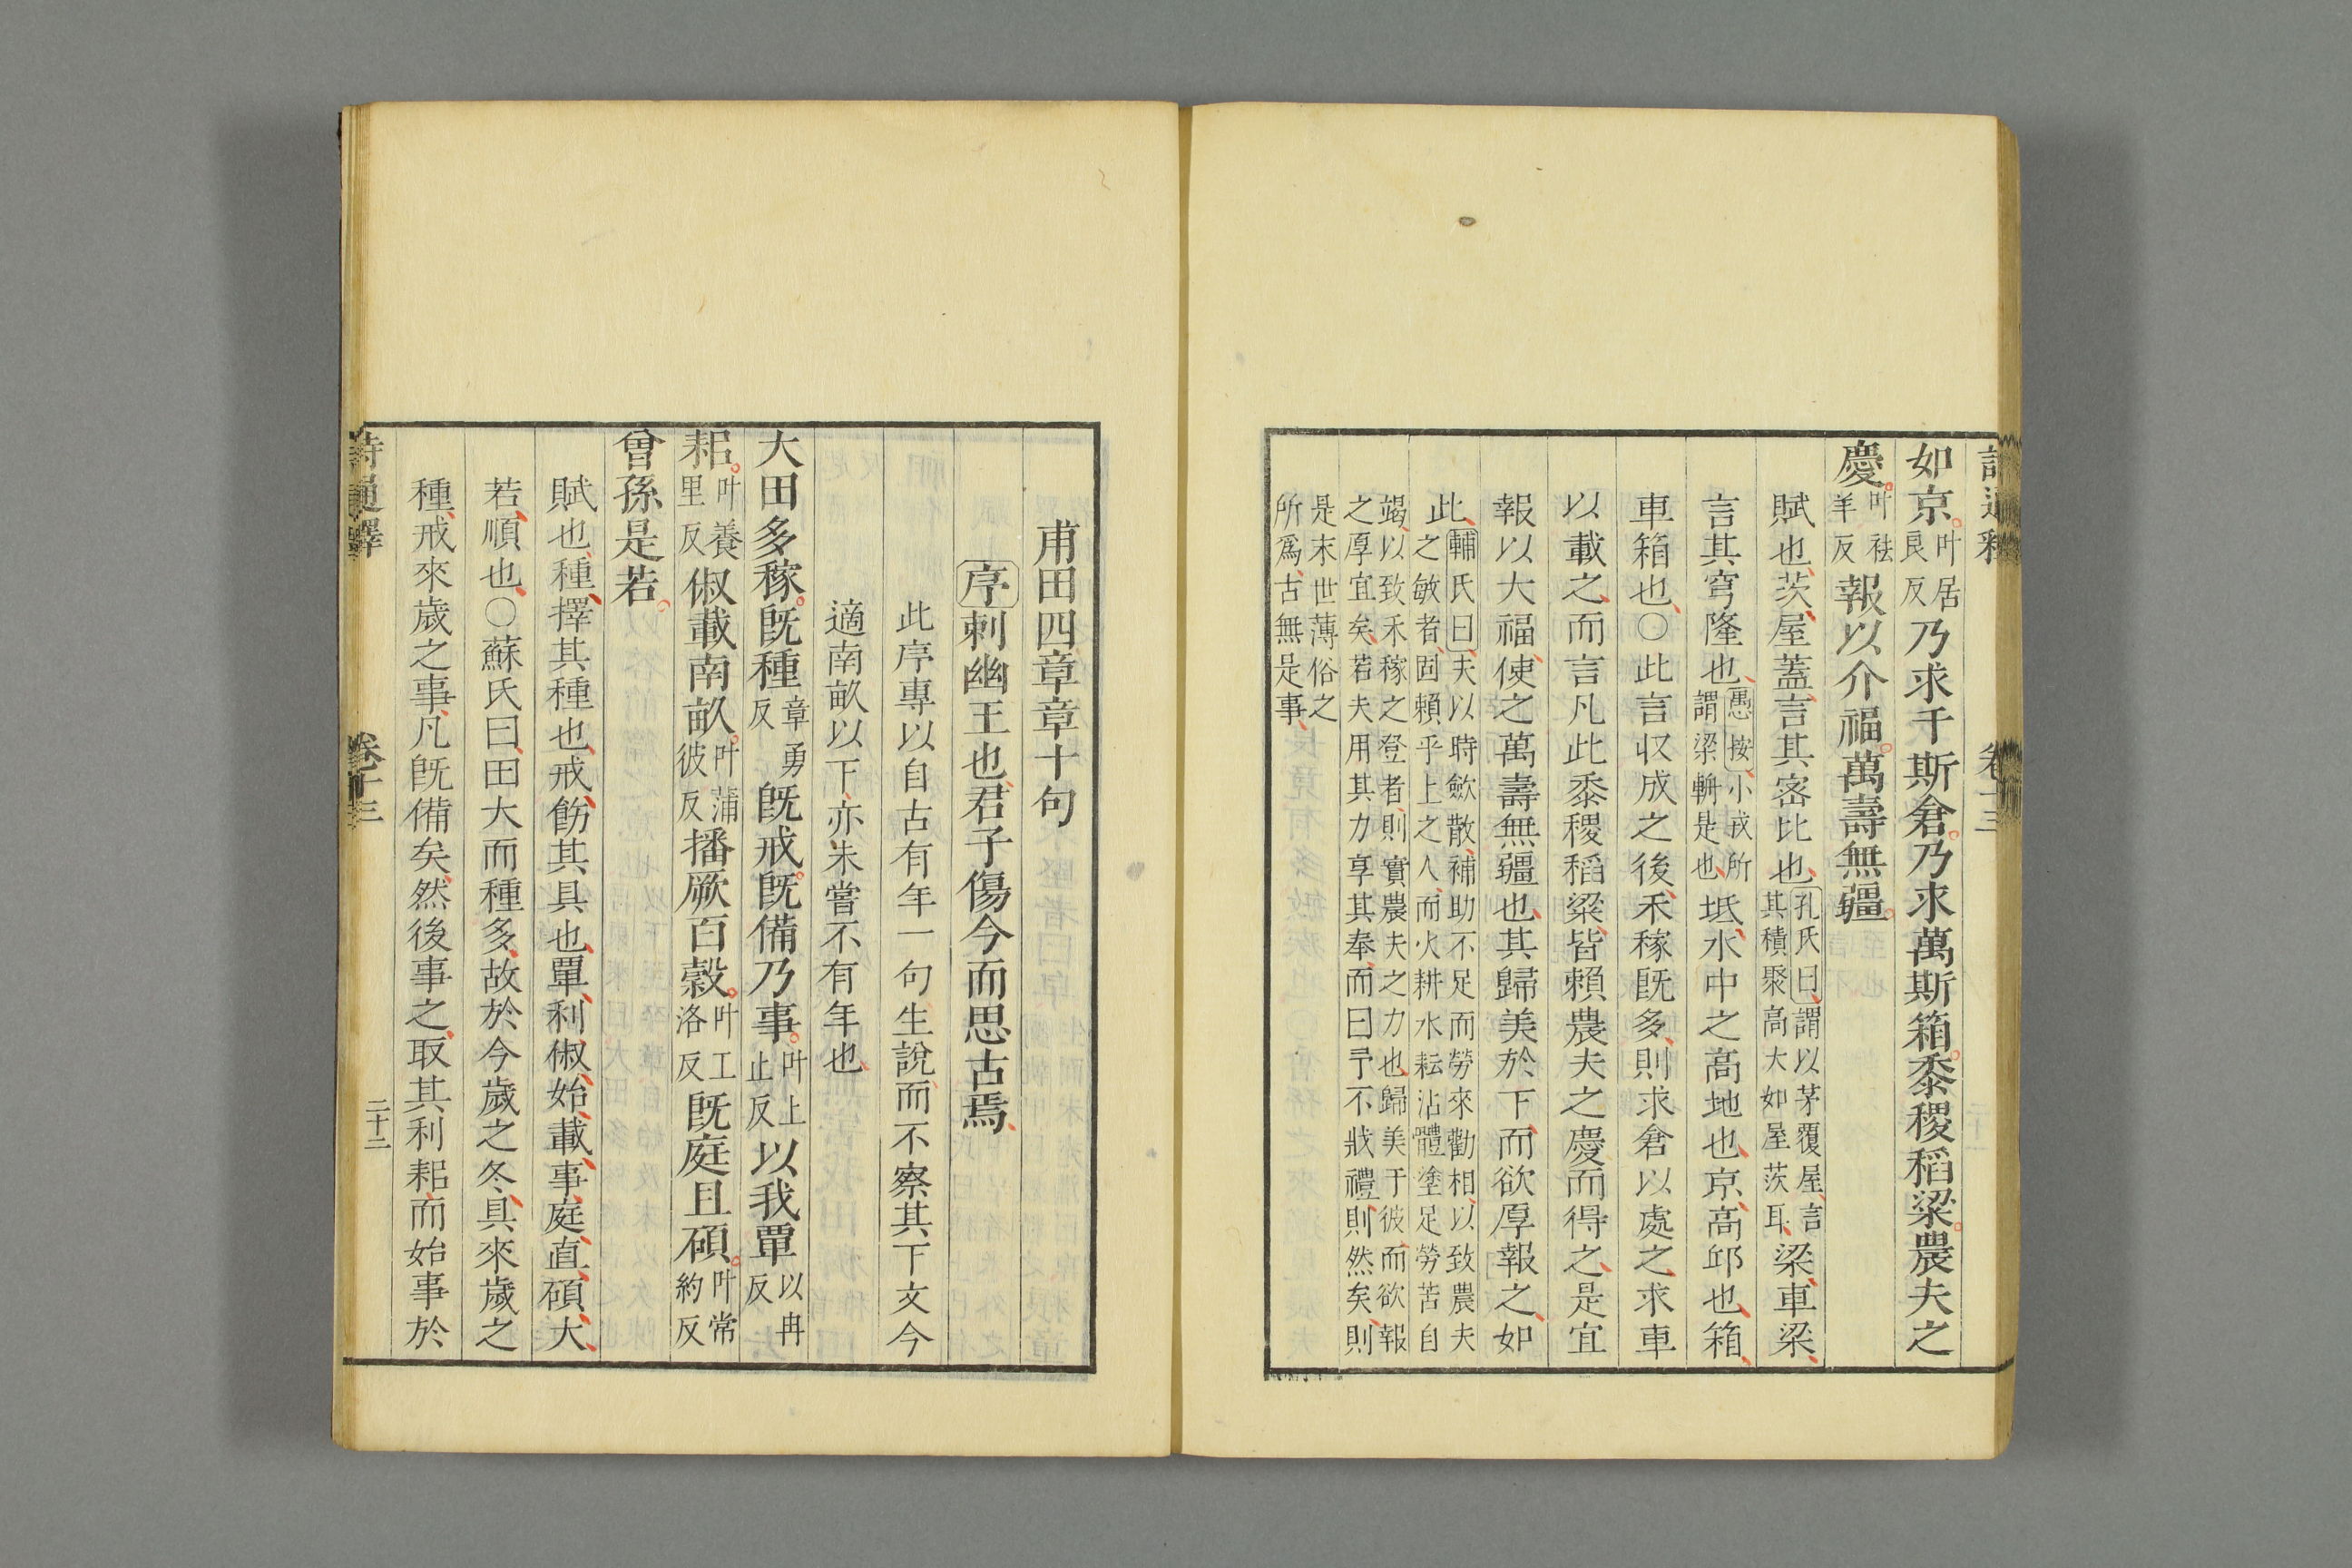 如京叶居良反乃求千斯倉乃求萬斯箱黍稷稻粱農夫之
慶叶祛羊反報以介福萬壽無疆
賦也茨屋蓋言其密比也孔氏曰謂以茅覆屋言其積聚高大如屋茨耳梁車梁
言其穹隆也愚按小戎所謂梁輈是也坻水中之高地也京高邱也箱
車箱也〇此言収成之後禾稼既多則求倉以處之求車
以載之而言凡此黍稷稻粱皆賴農夫之慶而得之是宜
報以大福使之萬壽無疆也其歸美於下而欲厚報之如
此輔氏曰夫以時歛散補助不足而勞來勸相以致農夫
之敏者固賴乎上之人而火耕水耘沾體塗足勞苦自
竭以致禾稼之登者則實農夫之力也歸美于彼而欲報
之厚宜矣若夫用其力享其奉而曰予不戕禮則然矣則
是末世薄俗之
所爲古無是事
甫田四章章十句
序刺幽王也君子傷今而思古焉
此序專以自古有年一句生說而不察其下文今
適南畝以下亦未嘗不有年也
大田多稼既種章勇反既戒既備乃事叶上止反以我覃以冉反
耜叶養里反俶載南畝叶蒲彼反播厥百穀叶工洛反既庭且碩叶常約反
曾孫是若
賦也種擇其種也戒飭其具也覃利俶始載事庭直碩大
若順也〇蘇氏曰田大而種多故於今歲之冬具來歲之
種戒來歲之事凡既備矣然後事之取其利耜而始事於
詩通釋 卷十三 二十二